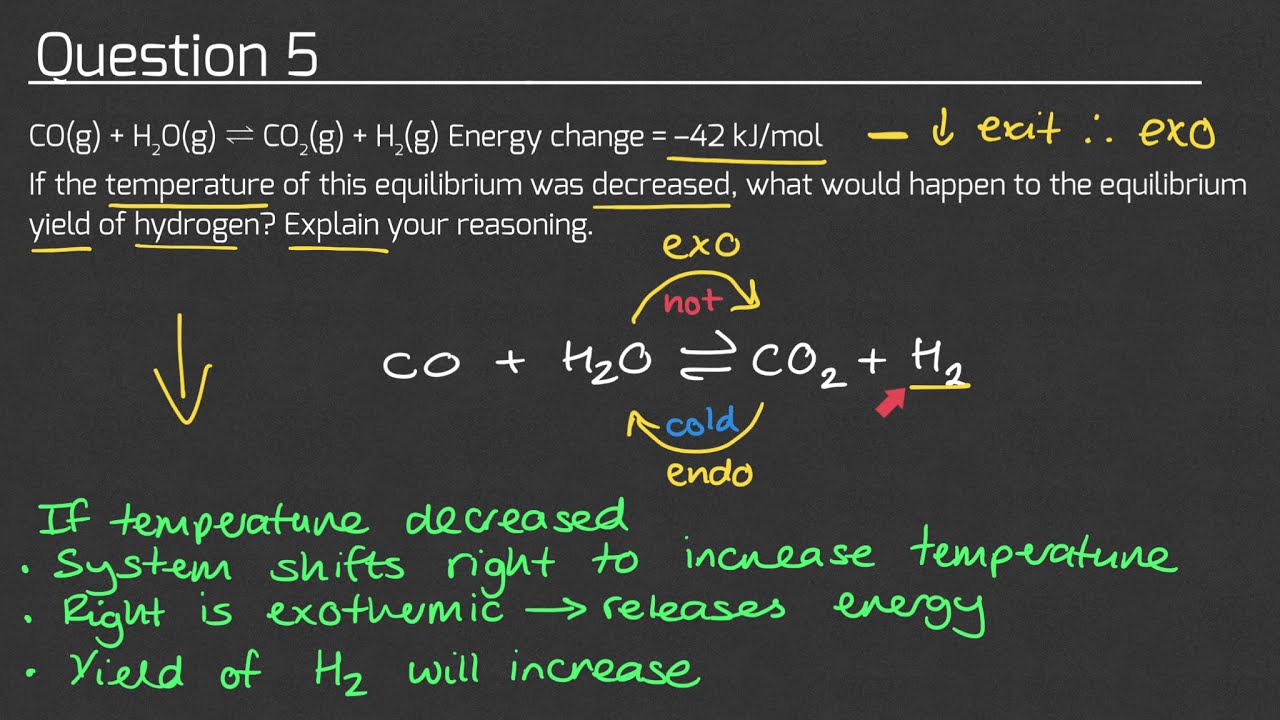 Question 5
CO(g) + H₂O(g) ⇌ CO₂(g) + H₂(g) Energy change = –42 kJ/mol
– ↓ exit ∴ exo
If the temperature of this equilibrium was decreased, what would happen to the equilibrium
yield of hydrogen? Explain your reasoning.
exo
hot
CO + H₂O ⇌ CO₂ + H₂
cold
endo
If temperature decreased
• System shifts right to increase temperature
• Right is exothermic → releases energy
• Yield of H₂ will increase